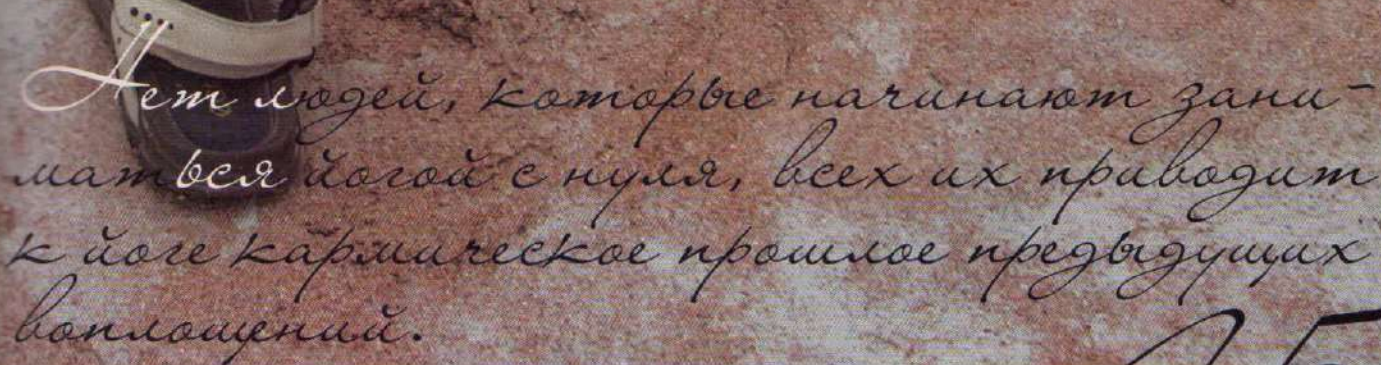 Нет людей, которые начинают зани-
маться йогой с нуля, всех их приводит
к йоге кармическое прошлое предыдущих
воплощений.